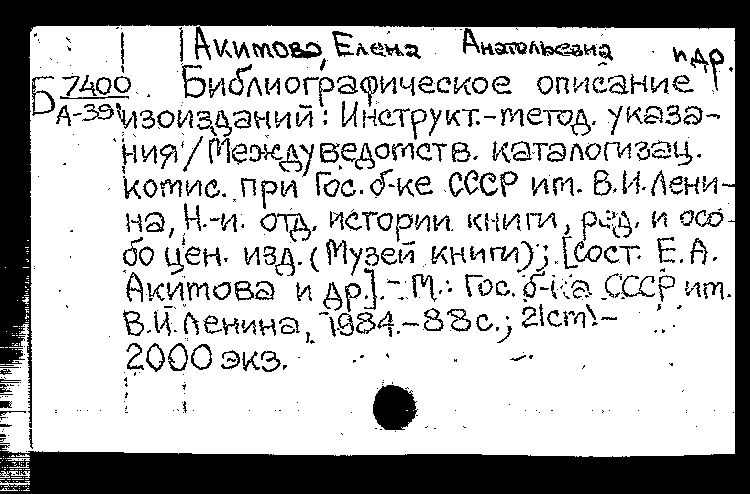 Акимова, Елена Анатольевна и др.
Б 7400 Библиографическое описание
А-391 изоизданий: Инструкт.-метод. указа-
ния / Междуведомств. каталогизац.
комис. при Гос. б-ке СССР им. В.И. Лени-
на, Н.-и. отд. истории книги, ред. и осо-
бо цен. изд. (Музей книги); [Сост. Е.А.
Акимова и др.].- М.: Гос. б-ка СССР им.
В.И. Ленина, 1984.-88с.; 21cm.-
2000 экз.